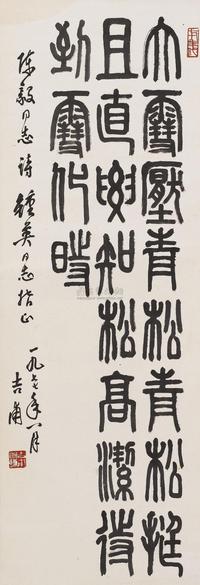 大雪壓青松青松挺
且直要知松高潔待
到雪化時
陈毅同志诗 鍾英同志指正
一九七年八月
吉甫